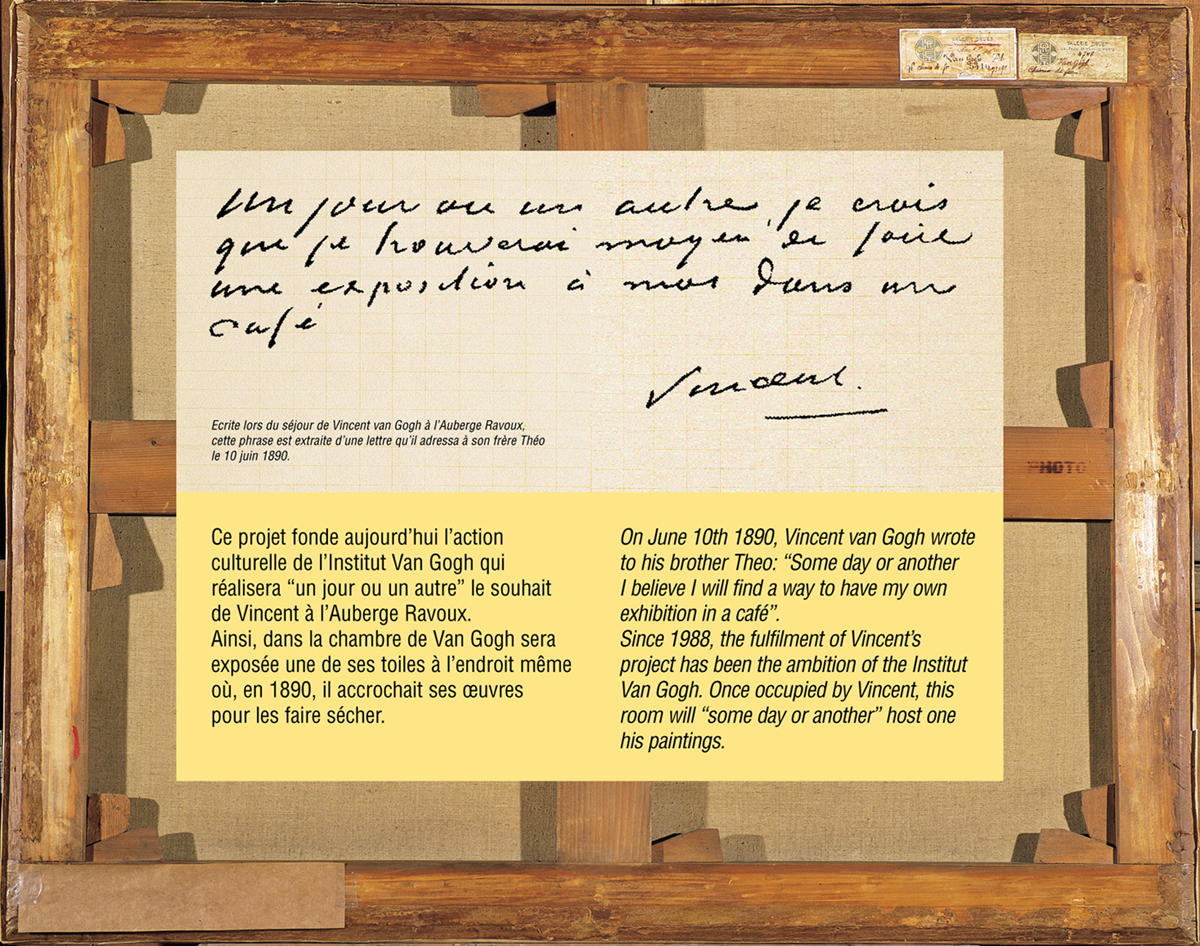 GALERIE DRUET
GALERIE DRUET
Van Gogh
Un jour ou un autre, je crois
que je trouverai moyen de faire
une exposition à moi dans un
café
Vincent.
Ecrite lors du séjour de Vincent van Gogh à l'Auberge Ravoux,
cette phrase est extraite d'une lettre qu'il adressa à son frère Théo
le 10 juin 1890.
PHOTO
Ce projet fonde aujourd'hui l'action
culturelle de l'Institut Van Gogh qui
réalisera “un jour ou un autre” le souhait
de Vincent à l'Auberge Ravoux.
Ainsi, dans la chambre de Van Gogh sera
exposée une de ses toiles à l'endroit même
où, en 1890, il accrochait ses œuvres
pour les faire sécher.
On June 10th 1890, Vincent van Gogh wrote
to his brother Theo: “Some day or another
I believe I will find a way to have my own
exhibition in a café”.
Since 1988, the fulfilment of Vincent's
project has been the ambition of the Institut
Van Gogh. Once occupied by Vincent, this
room will “some day or another” host one
his paintings.